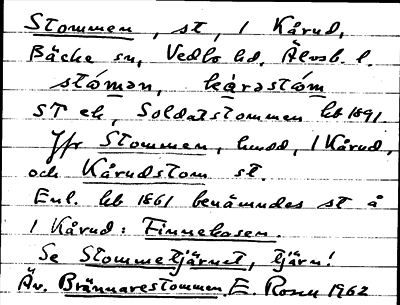 Stommen, st, 1 Kårud,
Bäcke sn, Vedbo hd, Älvsb. l.
stómən, kárəstóm
ST ek, Soldatstommen hb 1891.
Jfr Stommen, hmd, 1 Kårud,
och Kårudstom st.
Enl. hb 1861 benämndes st å
1 Kårud: Finnekasen.
Se Stommetjärnet, tjärn!
Äv. Brännarestommen. E. Rosn 1962